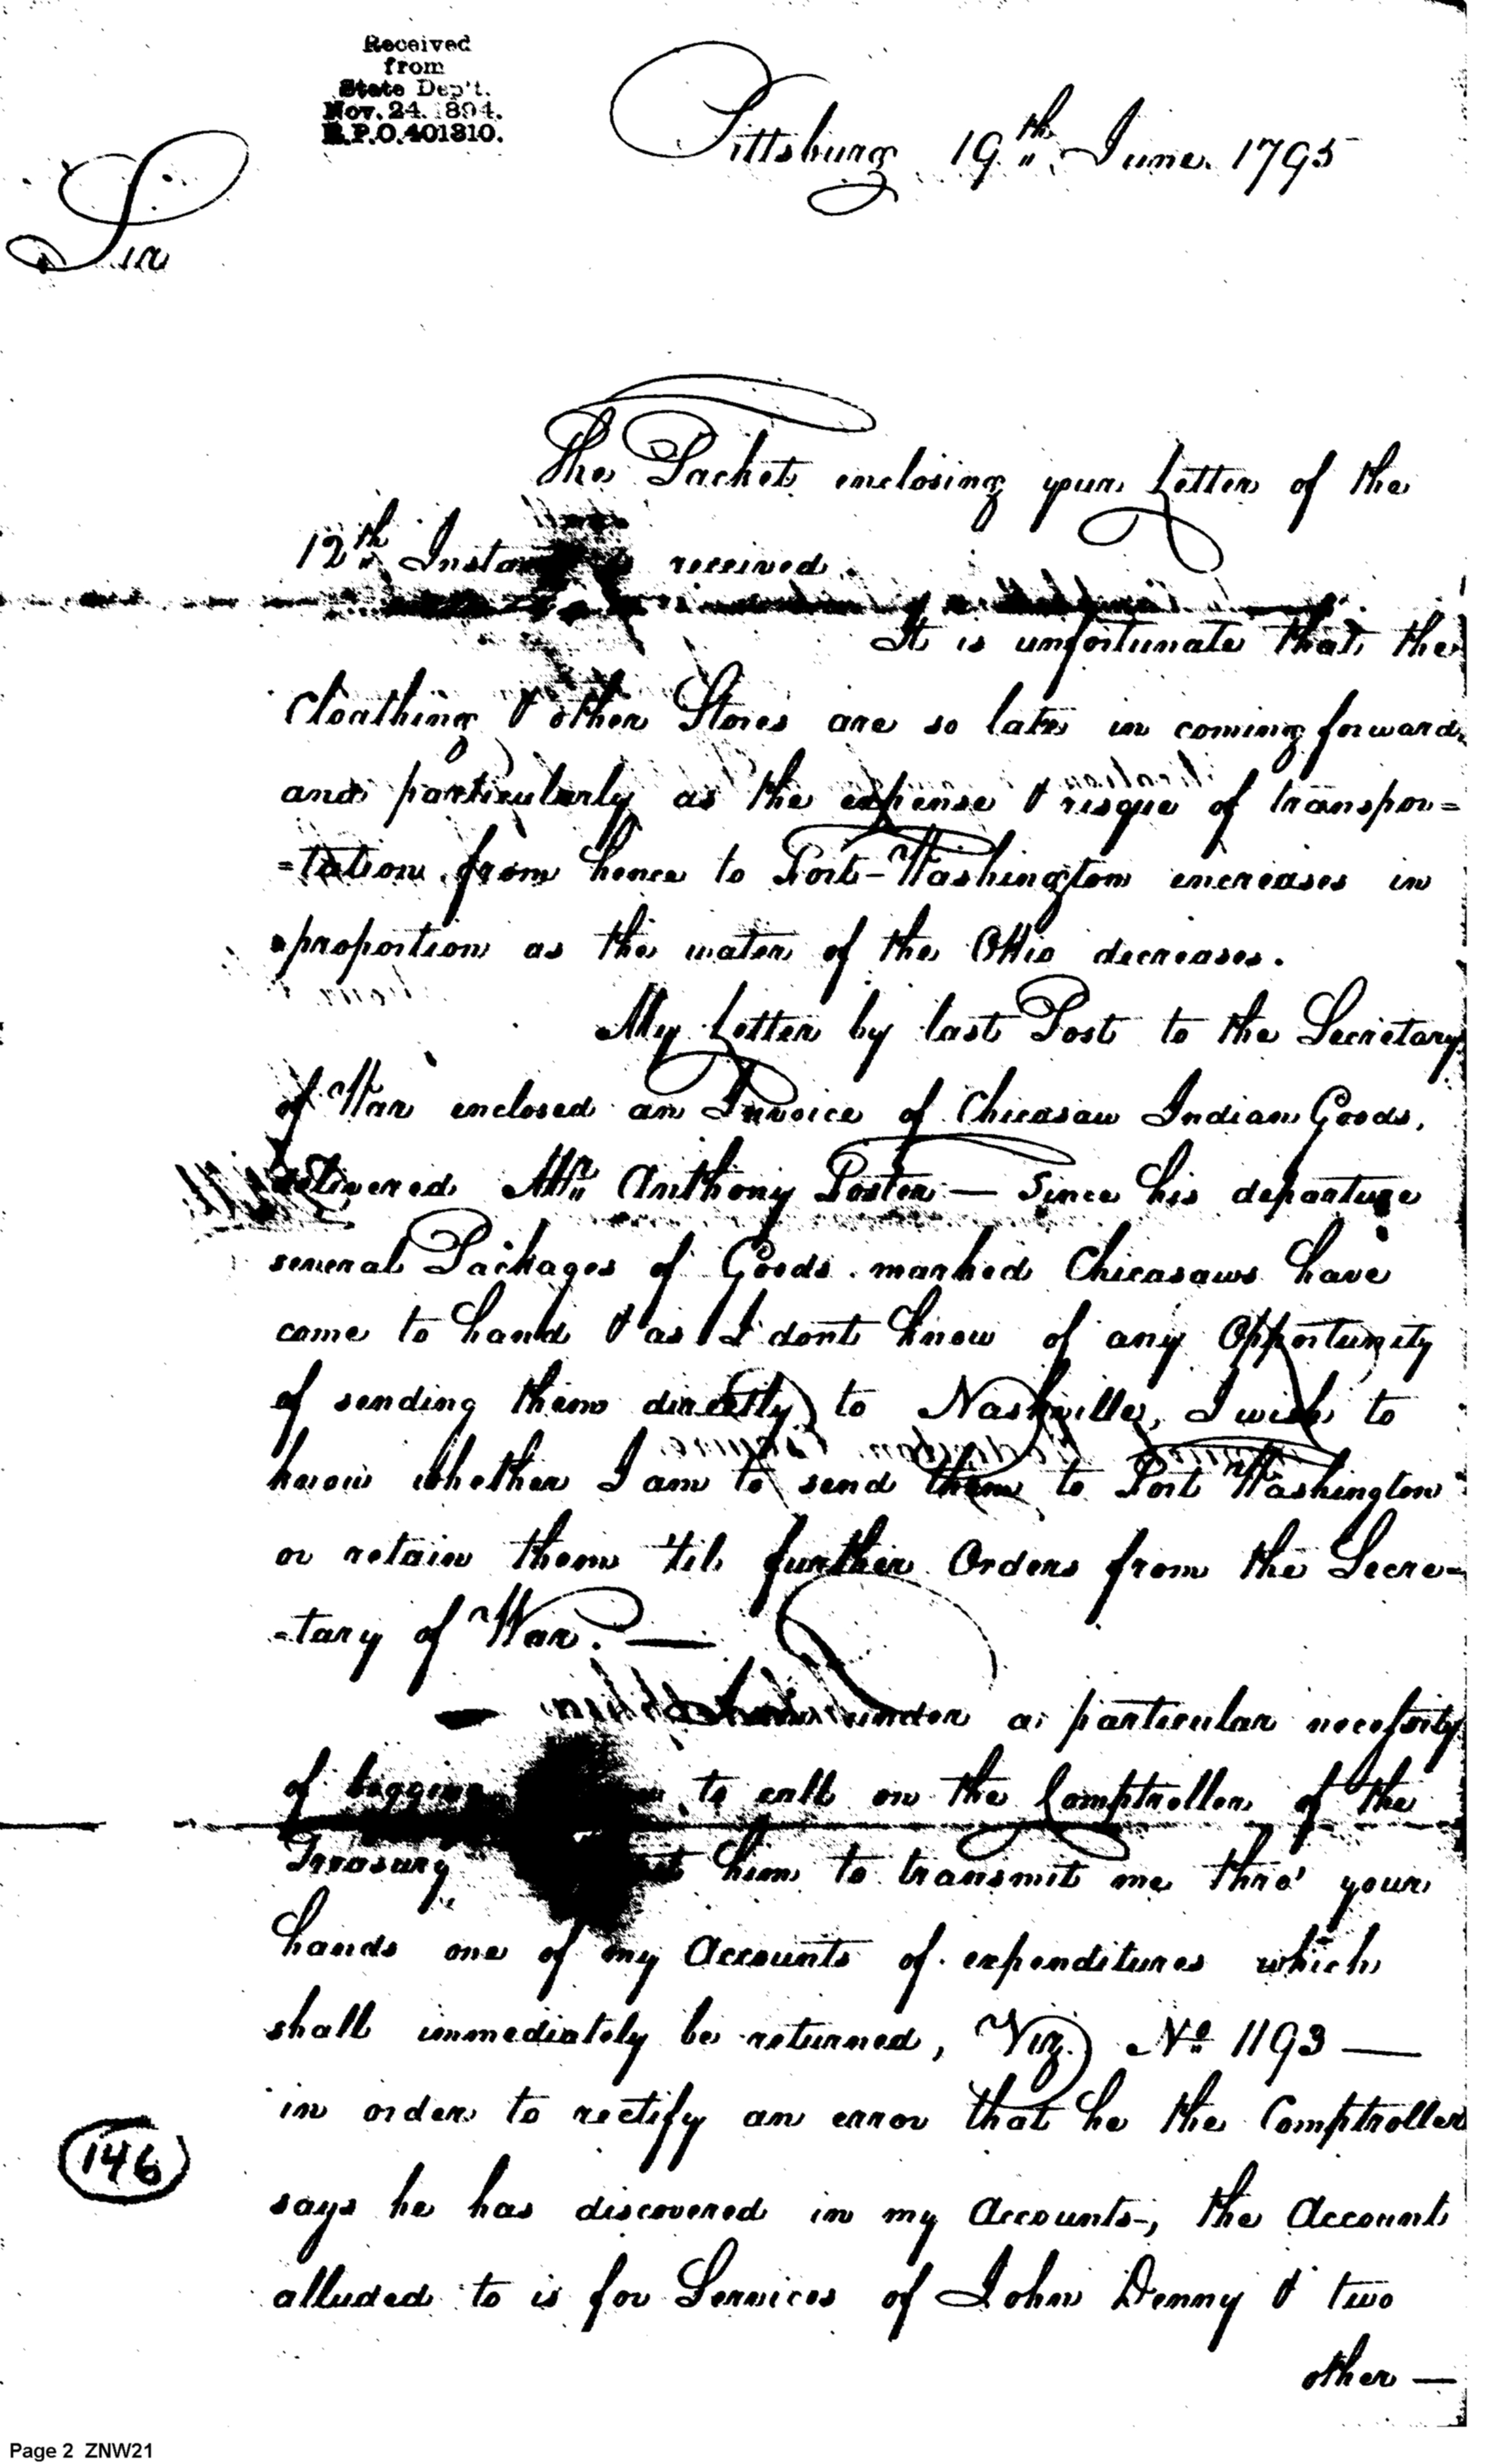 Received
from
State Dep't.
Nov. 24. 1894.
R.P.O. 401310.
Pittsburg 19th June 1795
Sir
The Packet enclosing your Letter of the
12th received.
It is unfortunate that the
Cloathing & other Stores are so late in coming forward,
and particularly as the expense & risque of transpor=
=tation from hence to Fort-Washington encreases in
proportion as the water of the Ohio decreases.
My Letter by last Post to the Secretary
of War enclosed an Invoice of Chicasaw Indian Goods,
delivered Mr. Anthony Foster — Since his departure
several Packages of Goods marked Chicasaws have
come to hand & as I dont know of any Opportunity
of sending them directly to Nashville, I wish to
know whether I am to send them to Fort Washington
or retain them 'til further Orders from the Secre=
=tary of War. —
under a particular necessity
of begging to call on the Comptroller of the
Treasury him to transmit me thro' your
hands one of my Accounts of expenditures which
shall immediately be returned, Viz. No 1193 —
in order to rectify an error that he the Comptroller
says he has discovered in my Accounts, the Account
alluded to is for Services of John Denny & two
other —
146
Page 2 ZNW21